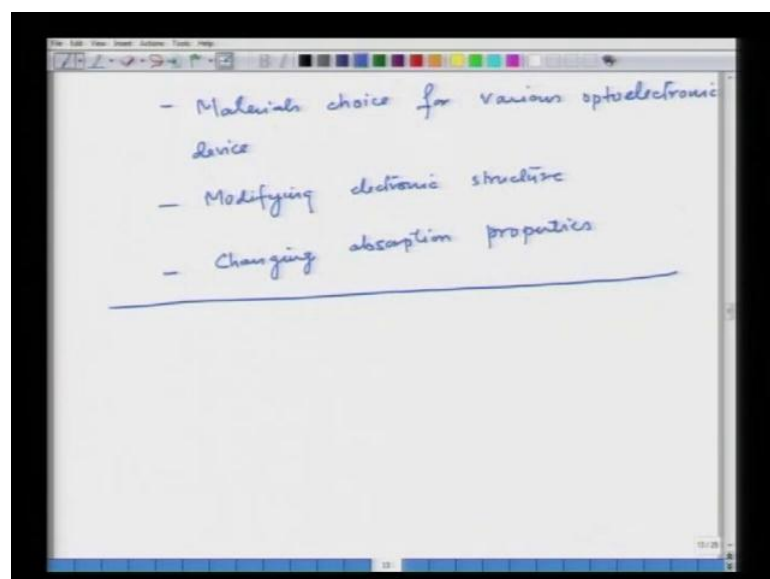 File Edit View Insert Actions Tools Help
- Materials choice for various optoelectronic
device
- Modifying electronic structure
- Changing absorption properties